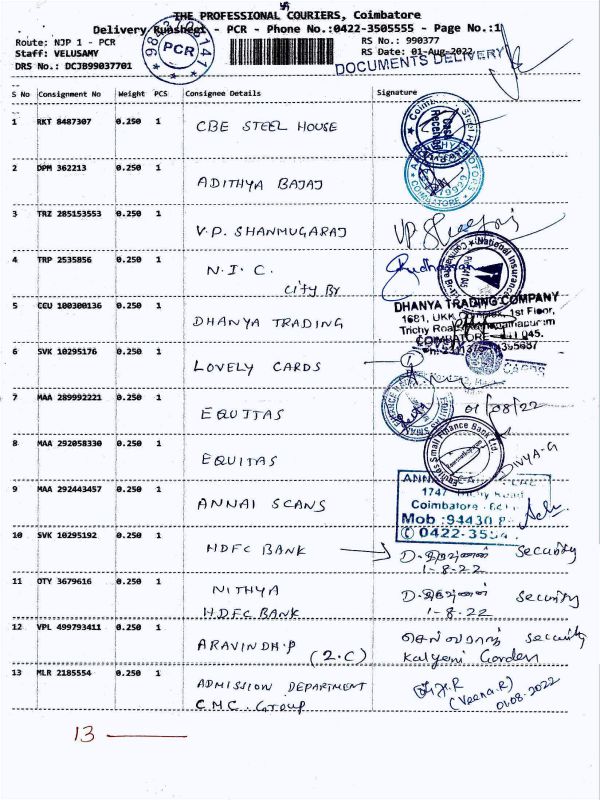 THE PROFESSIONAL COURIERS, Coimbatore
Delivery Runsheet - PCR - Phone No.:0422-3505555 - Page No.:1
Route: NJP 1 - PCR
RS No.: 990377
Staff: VELUSAMY
RS Date: 01-Aug-2022
DRS No.: DCJB99037701
PCR
DOCUMENTS DELIVERY
S No Consignment No Weight PCS Consignee Details Signature
1 RKT 8487307 0.250 1 CBE STEEL HOUSE
2 DPM 362213 0.250 1 ADITHYA BAJAJ
COIMBATORE
3 TRZ 285153553 0.250 1 V.P. SHANMUGARAJ
4 TRP 2535856 0.250 1 N.I.C.
City Br
National Insurance
5 CEU 100300136 0.250 1 DHANYA TRADING
DHANYA TRADING COMPANY
1681, UKK Complex, 1st Floor,
Trichy Road
COIMBATORE
6 SVK 10295176 0.250 1 LOVELY CARDS
CARDS
7 MAA 289992221 0.250 1 EQUITAS 01/08/22
8 MAA 292058330 0.250 1 EQUITAS
Equitas Small Finance Bank Ltd.
DIVYA-G
9 MAA 292443457 0.250 1 ANNAI SCANS
1747 Trichy Road
Coimbatore
Mob :94430
0422-35
10 SVK 10295192 0.250 1 HDFC BANK security
1-8-22
11 OTY 3679616 0.250 1 NITHYA security
HDFC BANK 1-8-22
12 VPL 499793411 0.250 1 ARAVINDH.P security
(2.C) Kalyani Gorden
13 MLR 2185554 0.250 1 ADMISSION DEPARTMENT
C.M.C. Group (Veena.R) 01.08.2022
13